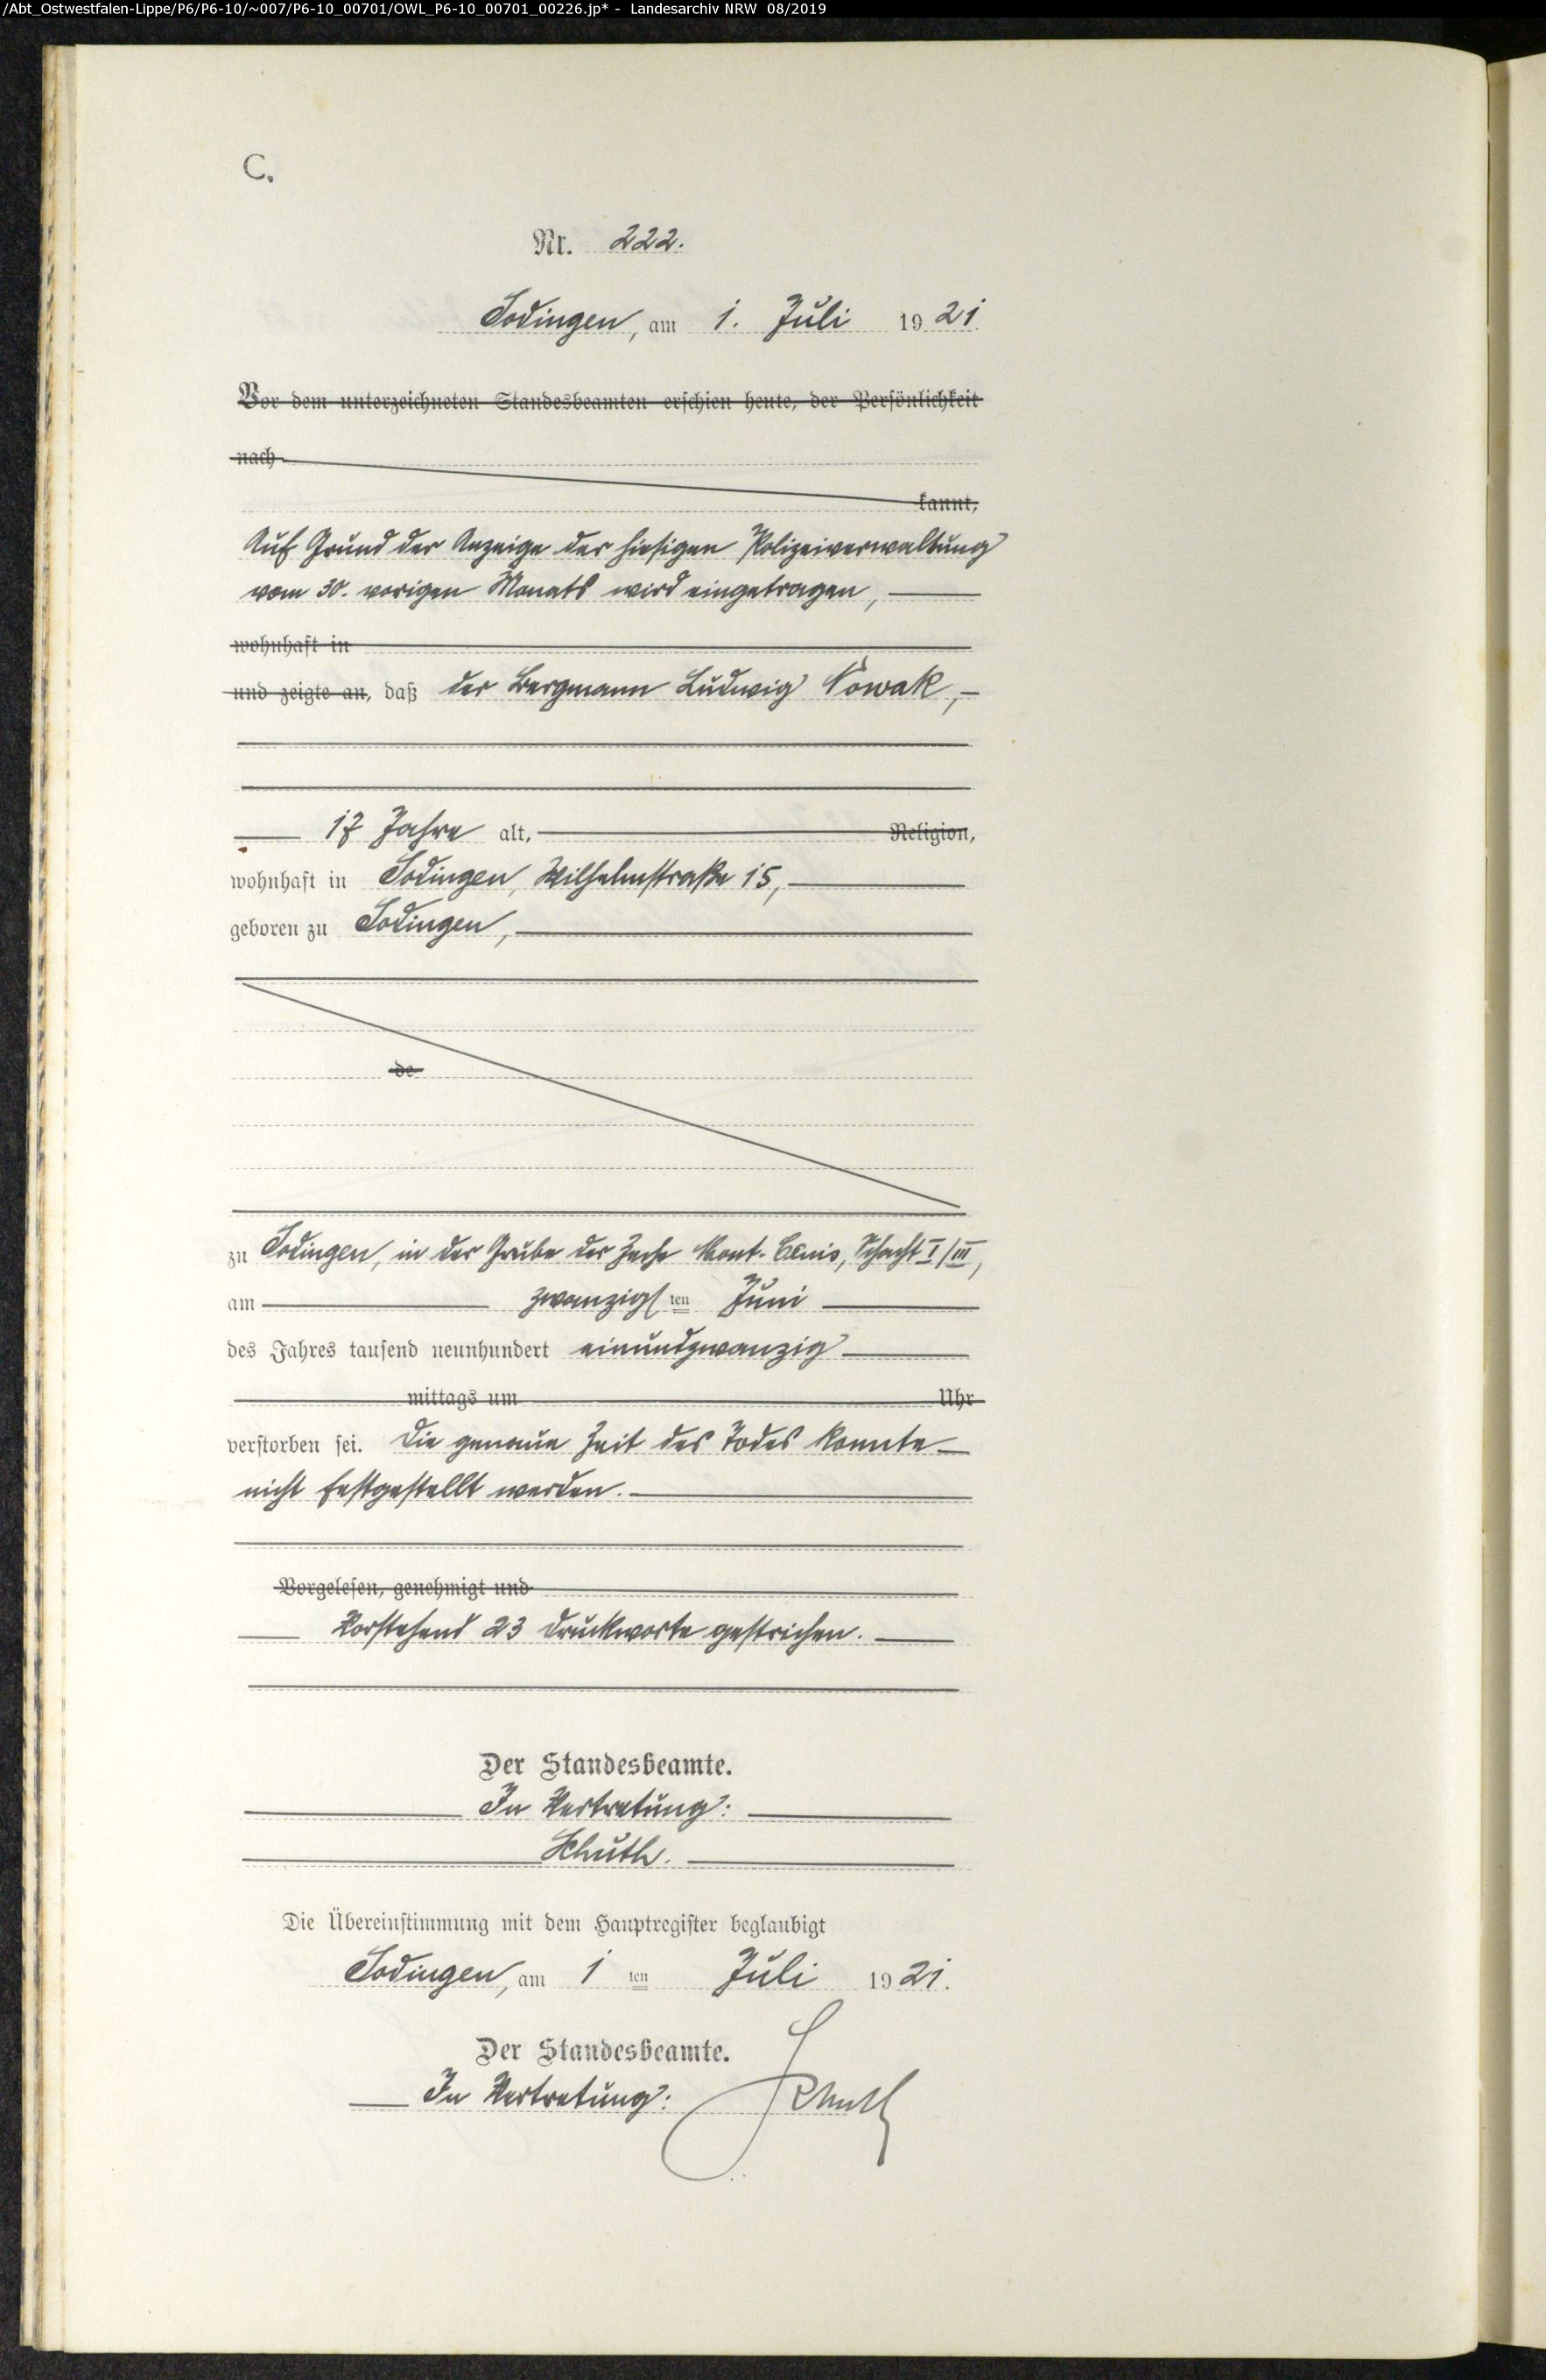 /Abt_Ostwestfalen-Lippe/P6/P6-10/~007/P6-10_00701/OWL_P6-10_00701_00226.jp* - Landesarchiv NRW 08/2019
C.
Nr. 222.
Sodingen, am 1. Juli 1921.
Vor dem unterzeichneten Standesbeamten erschien heute, der Persönlichkeit
nach
kannt,
Auf Grund der Anzeige der hiesigen Polizeiverwaltung
vom 30. vorigen Monats wird eingetragen,
wohnhaft in
und zeigte an, daß der Bergmann Ludwig Nowak,
17 Jahre alt, Religion,
wohnhaft in Sodingen, Wilhelmstraße 15,
geboren zu Sodingen,
de
zu Sodingen, in der Grube der Zeche Mont-Cenis, Schacht I/III,
am zwanzigsten Juni
des Jahres tausend neunhundert einundzwanzig
mittags um Uhr
verstorben sei. Die genaue Zeit des Todes konnte
nicht festgestellt werden.
Vorgelesen, genehmigt und
Vorstehend 23 Druckworte gestrichen.
Der Standesbeamte.
In Vertretung:
Schuth.
Die Übereinstimmung mit dem Hauptregister beglaubigt
Sodingen, am 1ten Juli 1921.
Der Standesbeamte.
In Vertretung: Schuth